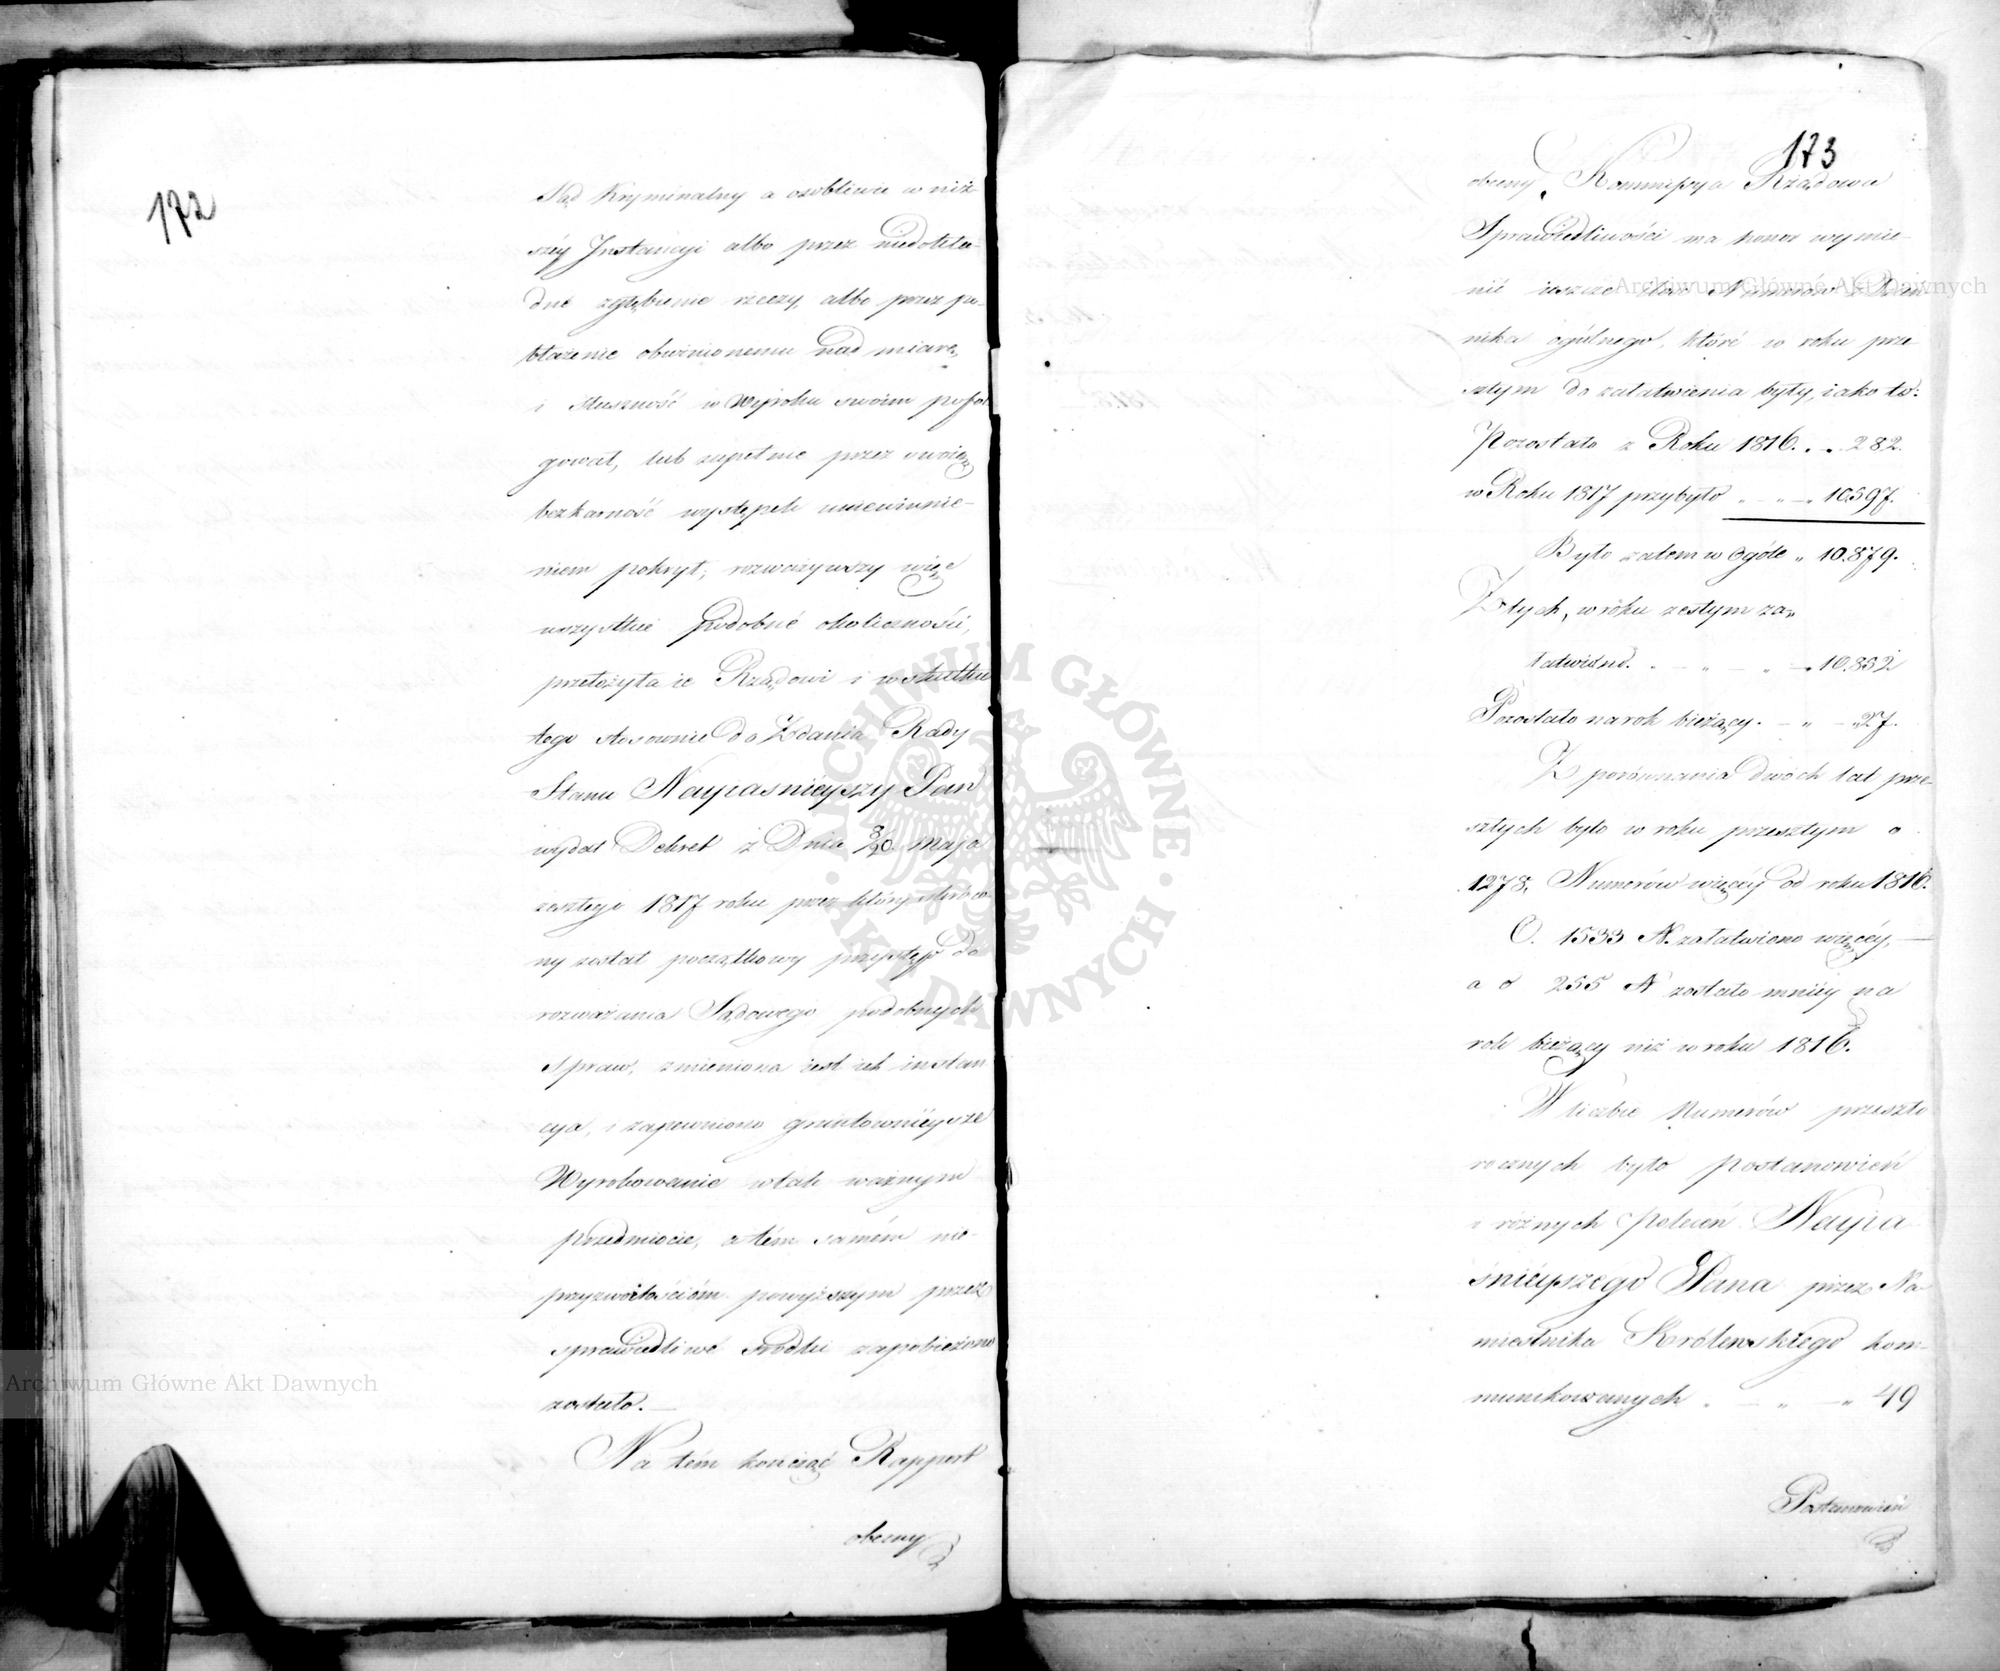 172
Sąd Kryminalny a osobliwie w niż-
széy Instancyi albo przez niedokła-
dné zgłębienie rzeczy, albo przez po-
błażenie obwinionemu nad miarę,
i słuszność w Wyroku swoim pofol-
gował, lub zupełnie przez swoię
bezkarność występek uniewinnie-
niem pokrył; rozważywszy więc
wszystkie podobné okoliczności,
przełożyła ie Rządowi i w skutku
tego stosownie do Zdania Rady
Stanu Nayiaśniéyszy Pan
wydał Dekret z Dnia 8/20. Maja
zeszłego 1817 roku przez który skróco-
ny został początkowy przystęp do
rozważania Sądowego podobnych
Spraw, zmieniona iest ich instan
cya, i zapewniono gruntowniéysze
Wyrokowanie w tak ważnym
przedmiocie, a tém samém nie-
przyzwoitościóm powyższym przez
sprawiedliwé środki zapobieżono
zostało.
Na tém kończąc Rapport
obecny
173
obecny, Kommissya Rządowa
Sprawiedliwości ma honor wymie-
nić ieszcze ilość Numerów Dzien-
nika ogólnego, któré w roku prze-
szłym do załatwienia były, iako to:
Pozostało z Roku 1816. . . 282.
w Roku 1817 przybyło „ - „ - „ 10.597.
Było zatem w Ogóle „ 10.879.
Z tych, w roku zeszłym za„
łatwiono. . - „ - „ - „ 10.852
Pozostało na rok bieżący. - „ - „ 27.
Z porównania dwóch lat prze-
szłych było w roku przeszłym o
1278. Numerów więcéy od roku 1816.
O. 1533 N. załatwiono więcéy, -
a o 255 N zostało mniéy na
rok bieżący niż w roku 1816.
W liczbie Numerów przeszło
rocznych było postanowień
i róźnych poleceń Nayia
śniéyszego Pana przez Na-
miestnika Królewskiego kom-
munikowanych „ - „ - „ 49
Postanowień
Archiwum Główne Akt Dawnych
Archiwum Główne Akt Dawnych
ARCHIWUM GŁÓWNE · AKT DAWNYCH ·